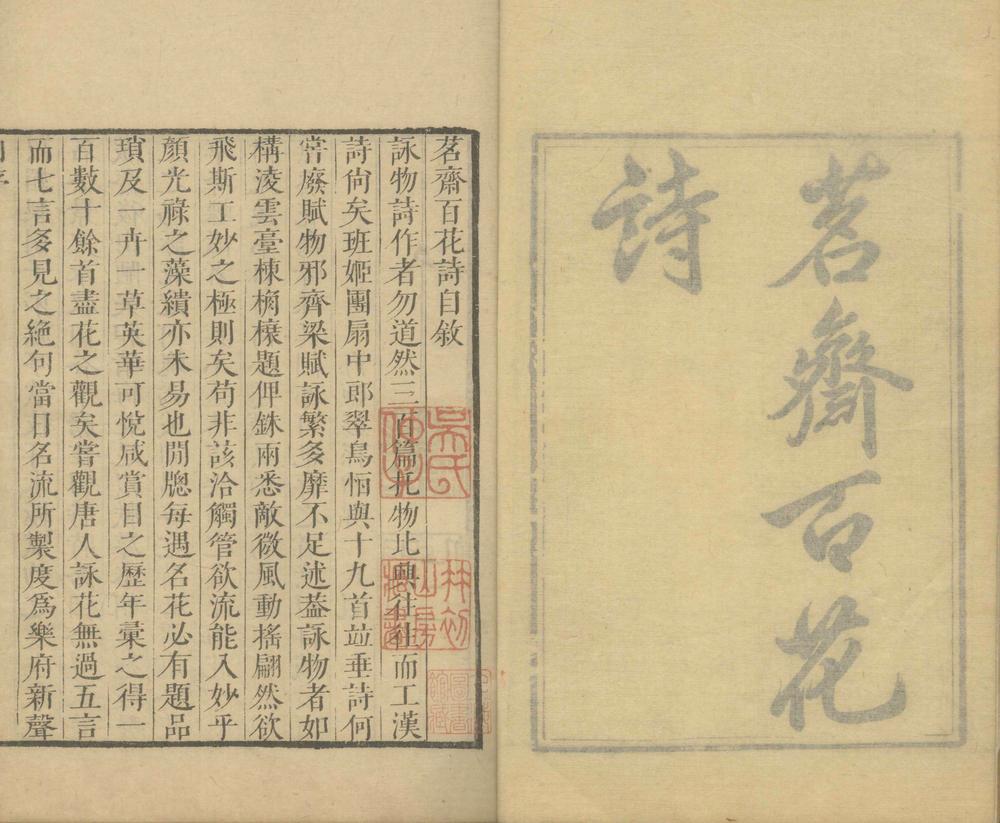 茗齋百花
詩
茗齋百花詩自敘
詠物詩作者勿道然三百篇托物比興往往而工漢
詩尙矣班姬團扇中郎翠鳥怬與十九首竝垂詩何
甞廢賦物邪齊梁賦詠繁多靡不足述葢詠物者如
構淩雲臺棟桷榱題俾銖兩悉敵微風動搖翩然欲
飛斯工妙之極則矣苟非該洽觸管欲流能入妙乎
顏光祿之藻繢亦未易也閒牕每遇名花必有題品
瑣及一卉一草英華可悅咸賞目之歷年彙之得一
百數十餘首盡花之觀矣甞觀唐人詠花無過五言
而七言多見之絶句當日名流所製度爲樂府新聲
吳氏
井初山房